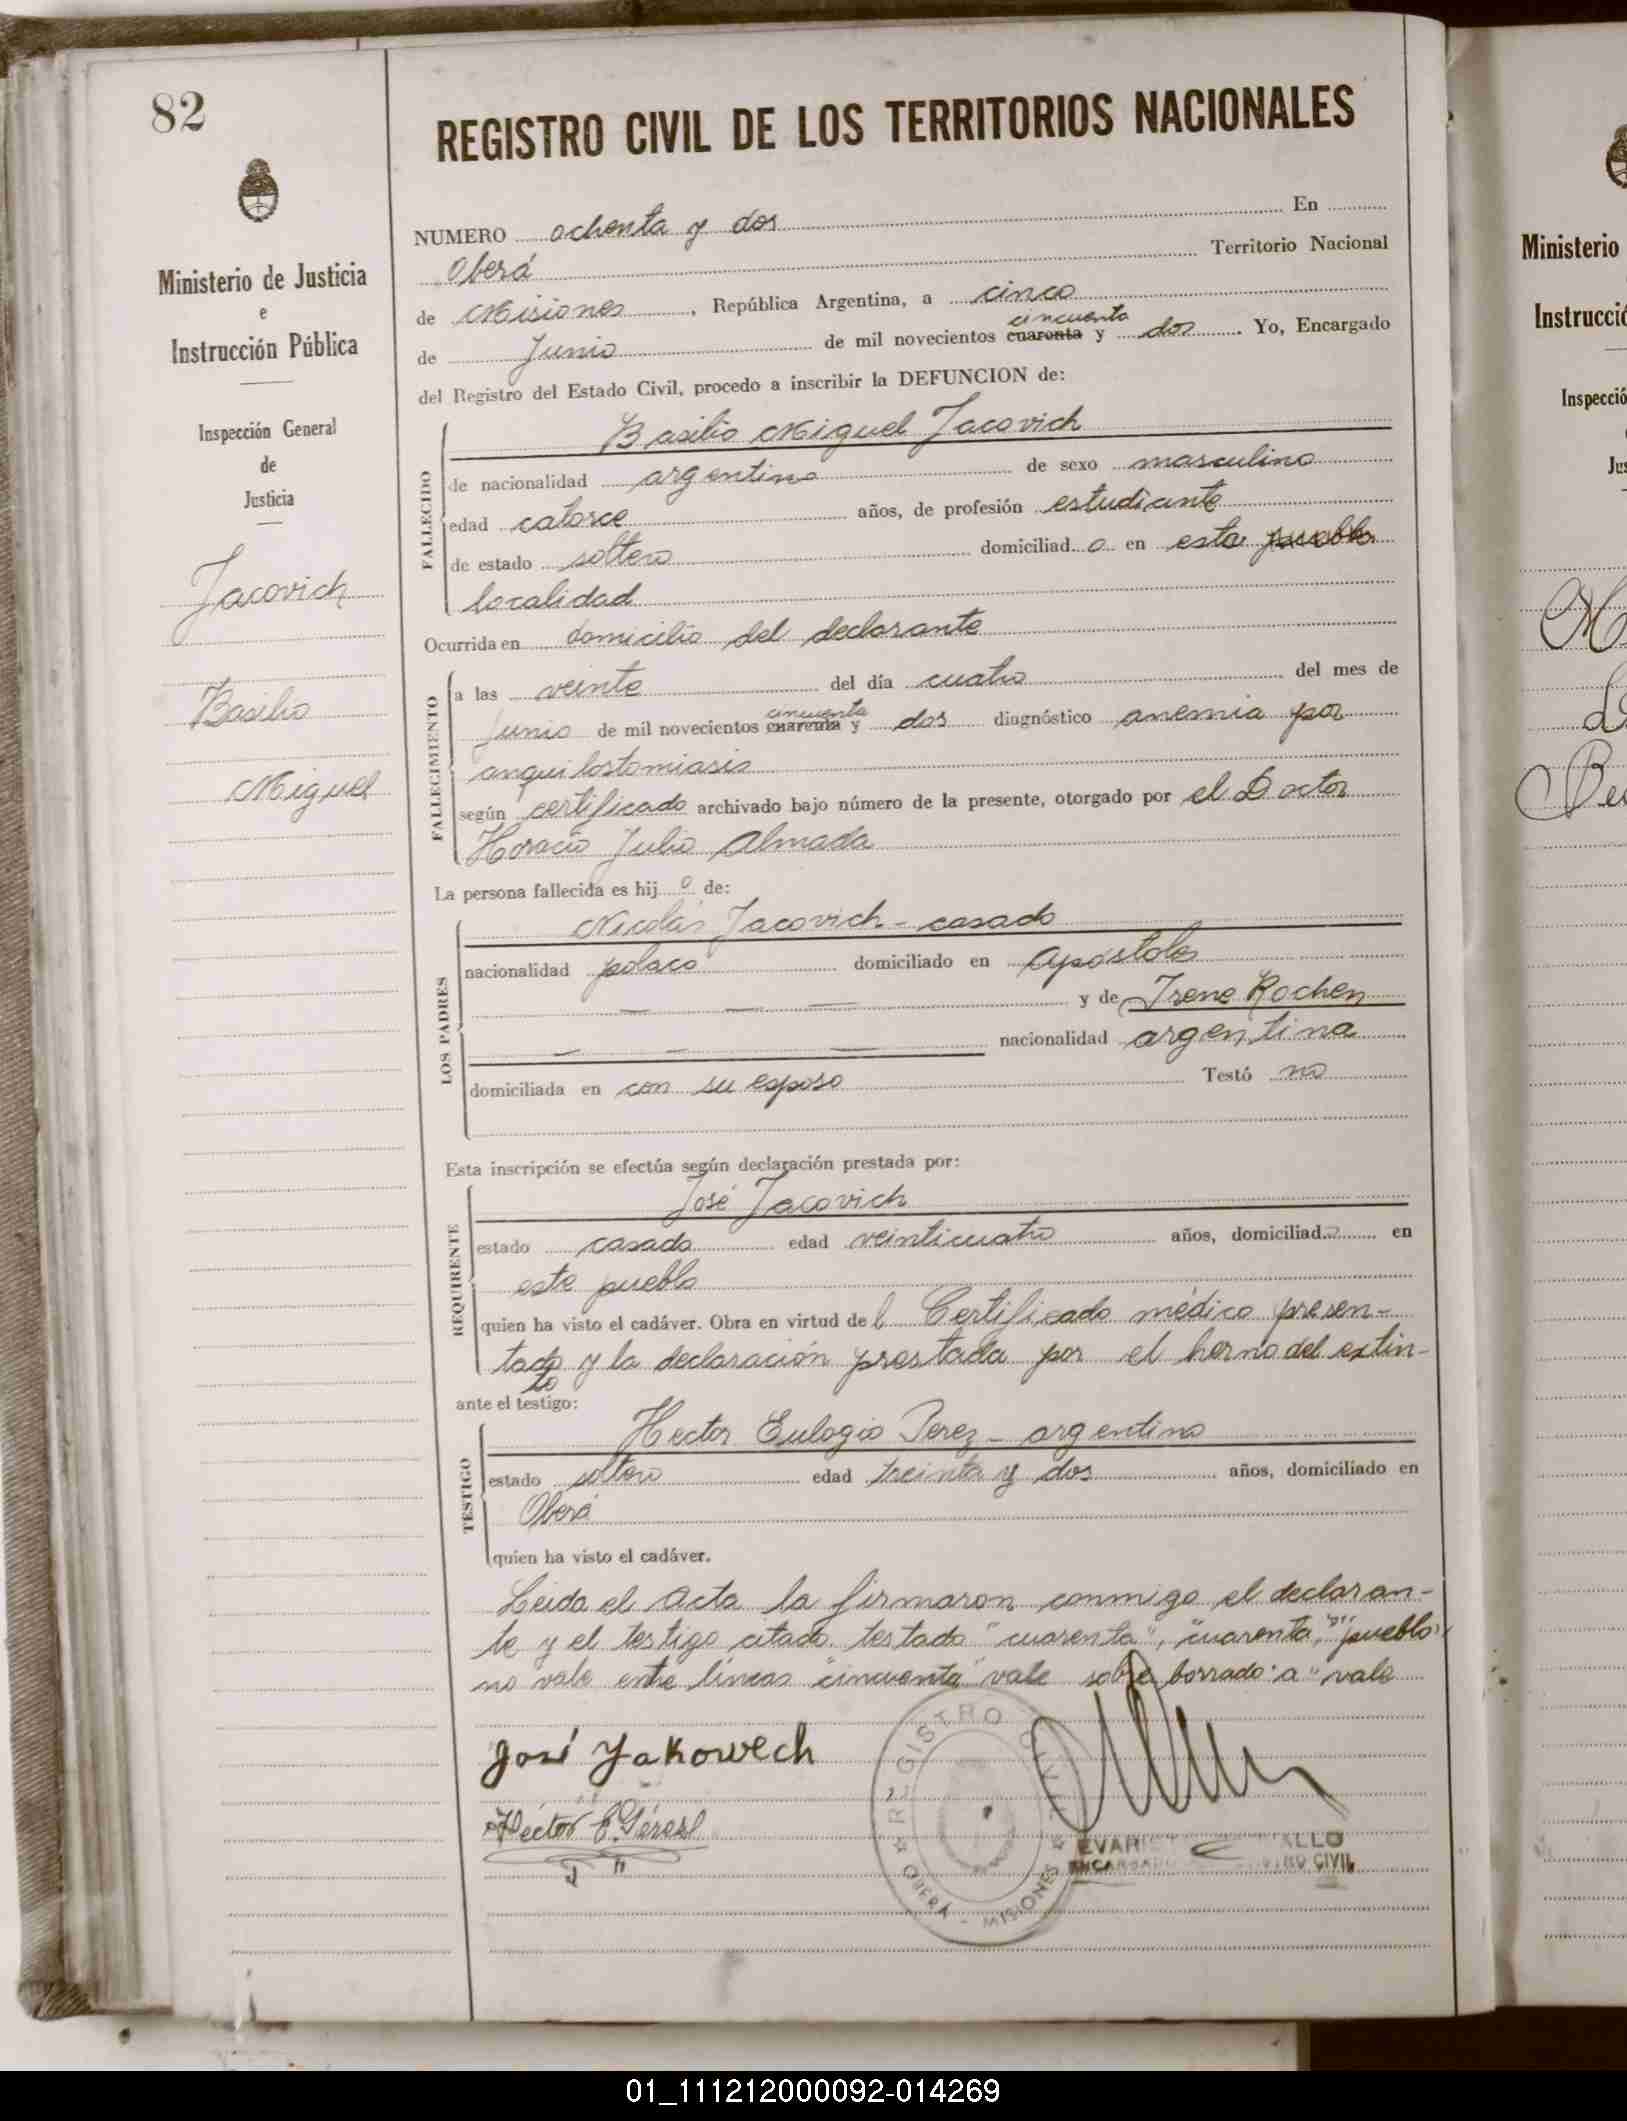 82
REGISTRO CIVIL DE LOS TERRITORIOS NACIONALES
Ministerio de Justicia
e
Instrucción Pública
Inspección General
de
Justicia
Jacovich
Basilio
Miguel
NUMERO ochenta y dos En
Oberá Territorio Nacional
de Misiones, República Argentina, a cinco
cincuenta
de Junio de mil novecientos cuarenta y dos. Yo, Encargado
del Registro del Estado Civil, procedo a inscribir la DEFUNCION de:
FALLECIDO
Basilio Miguel Jacovich
de nacionalidad argentino de sexo masculino
edad catorce años, de profesión estudiante
de estado soltero domiciliad o en esta pueblo
localidad
Ocurrida en domicilio del declarante
FALLECIMIENTO
a las veinte del día cuatro del mes de
cincuenta
Junio de mil novecientos cuarenta y dos diagnóstico anemia por
anquilostomiasis
según certificado archivado bajo número de la presente, otorgado por el Doctor
Horacio Julio Almada
La persona fallecida es hij o de:
LOS PADRES
Nicolás Jacovich - casado
nacionalidad polaco domiciliado en Apóstoles
y de Irene Rochen
nacionalidad argentina
domiciliada en con su esposo Testó no
Esta inscripción se efectúa según declaración prestada por:
REQUIRENTE
José Jacovich
estado casado edad veinticuatro años, domiciliado en
este pueblo
quien ha visto el cadáver. Obra en virtud del Certificado médico presen-
tado y la declaración prestada por el herno del extin-
to
ante el testigo:
TESTIGO
Hector Eulogio Perez - argentino
estado soltero edad treinta y dos años, domiciliado en
Oberá
quien ha visto el cadáver.
Leida el Acta la firmaron conmigo el declaran-
te y el testigo citado. testado "cuarenta", "cuarenta," "pueblo"
no vale entre líneas "cincuenta" vale sobre borrado: a" vale
José Yakowech
Héctor E. Pérez
REGISTRO CIVIL
OBERÁ - MISIONES
CIVIL
Ministerio
Instrucció
Inspecció
Jus
01_111212000092-014269